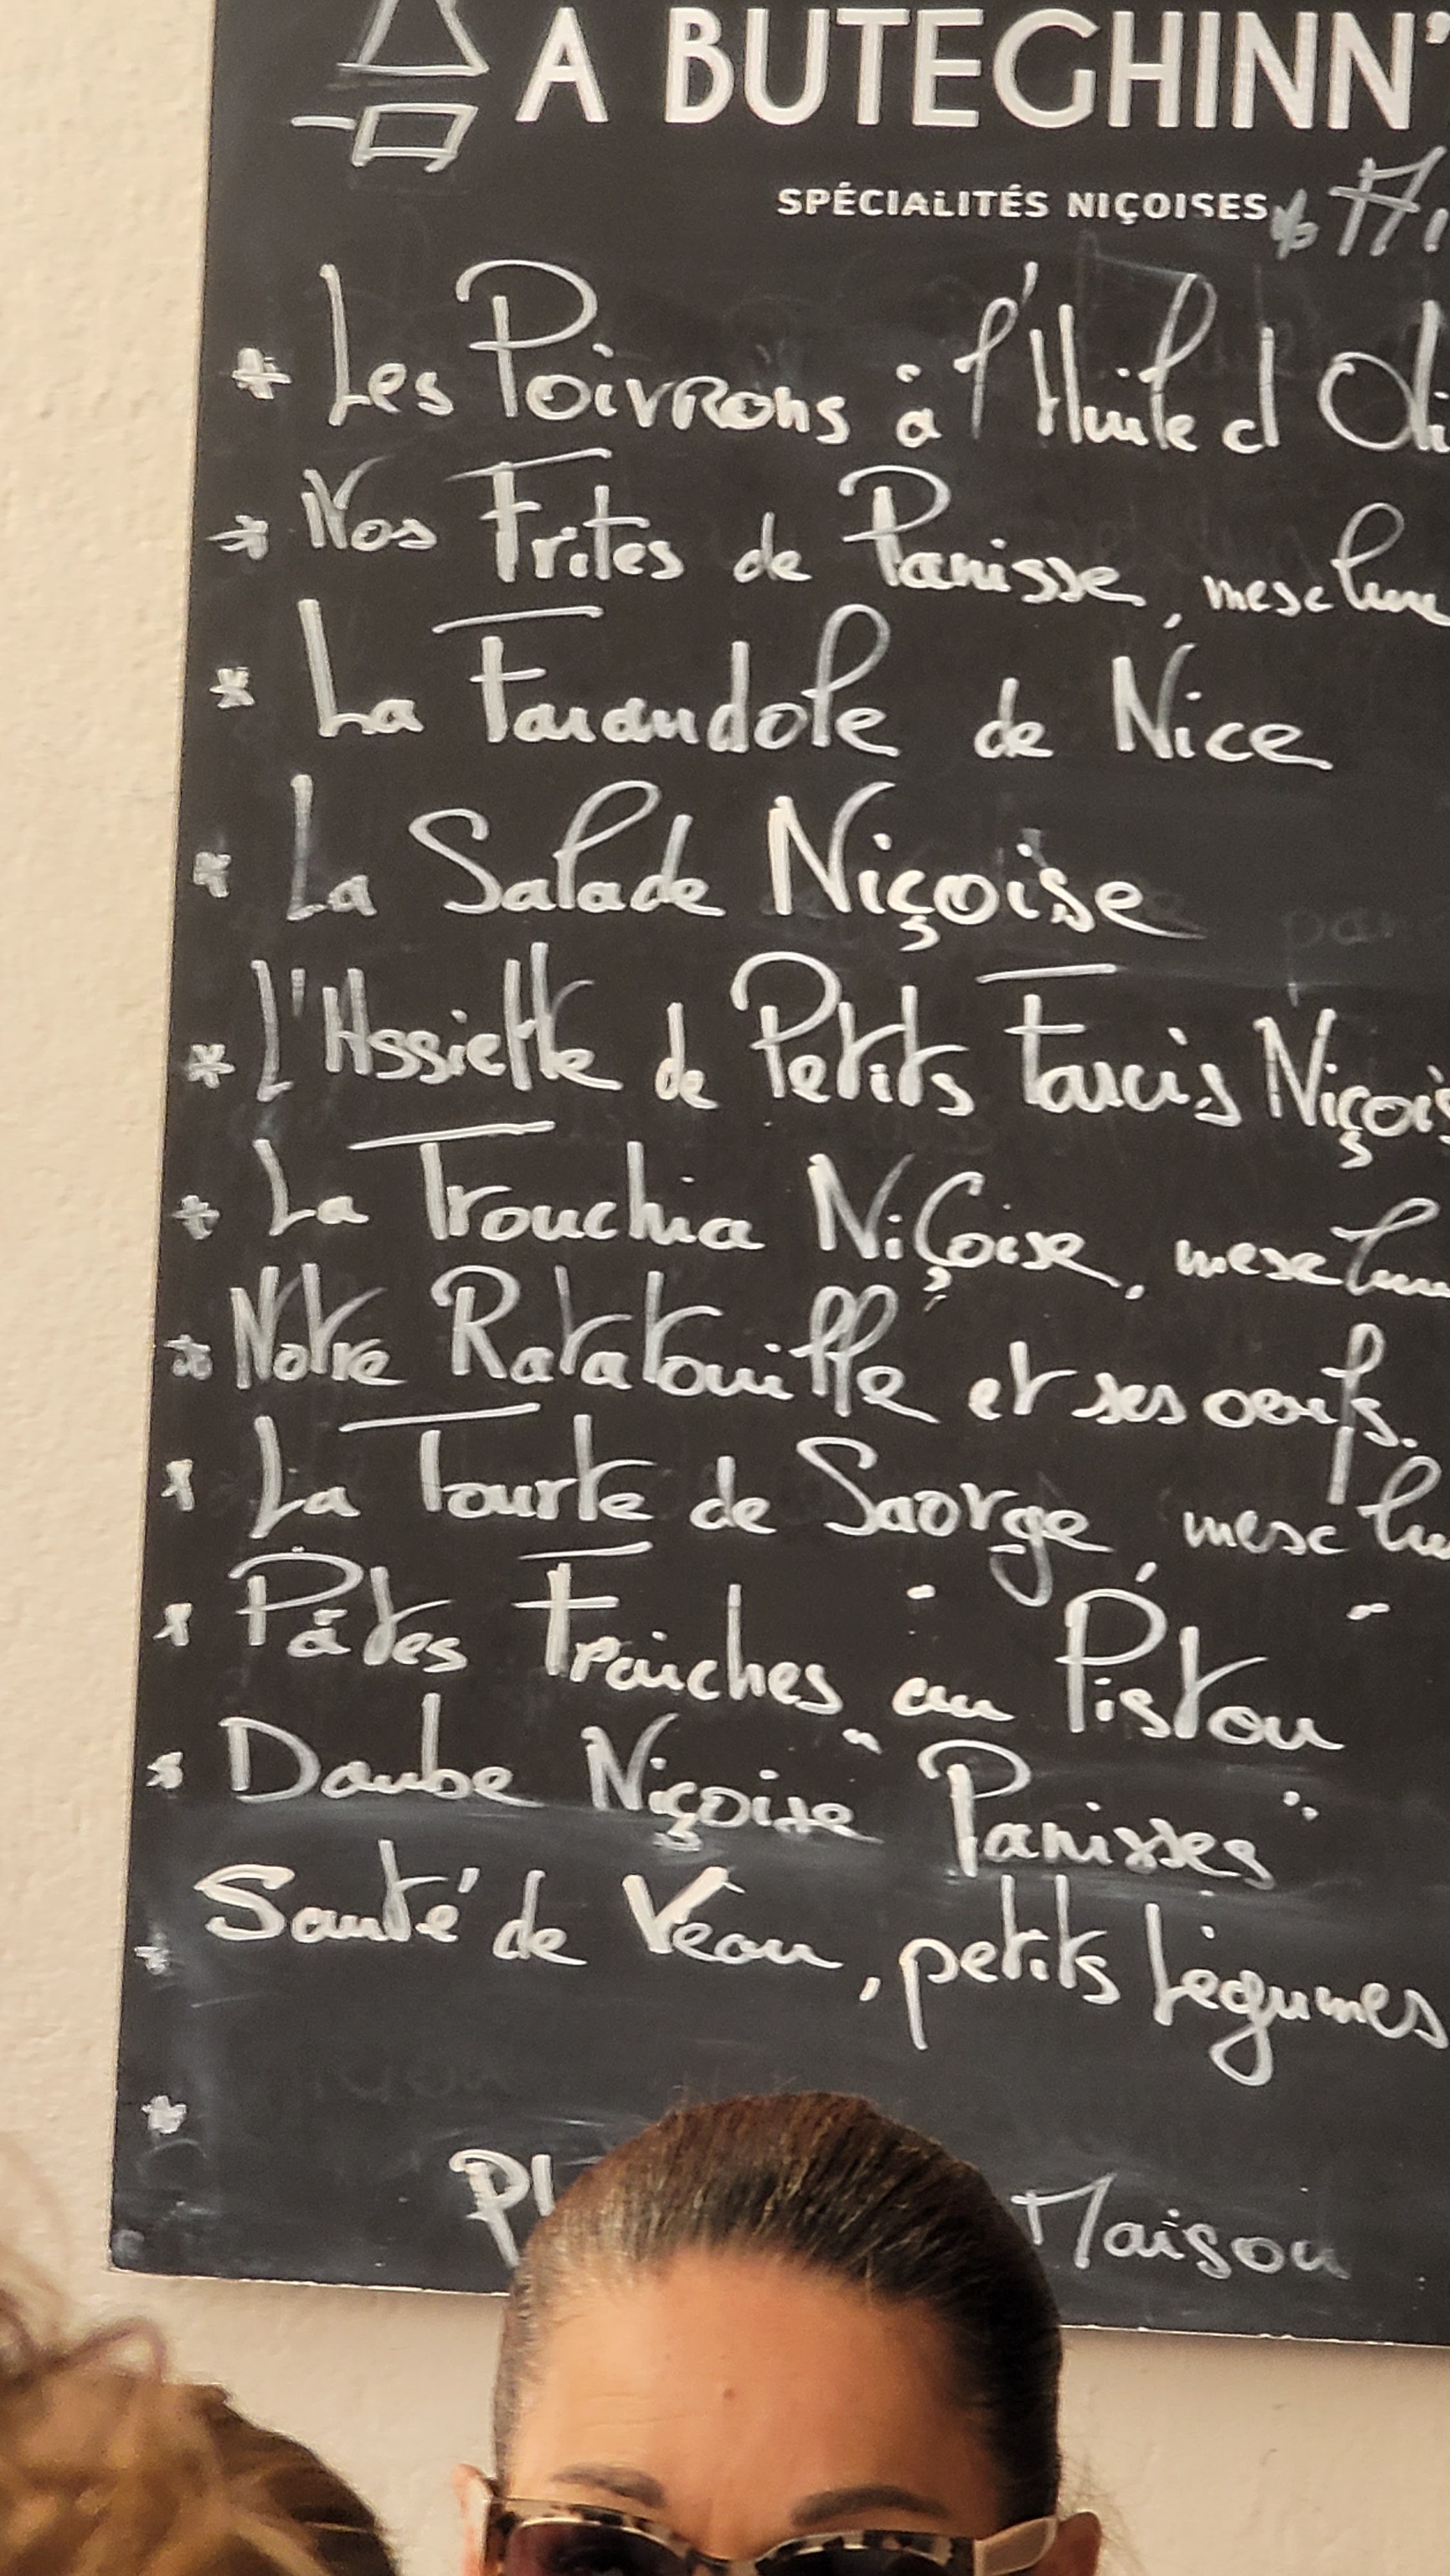 A BUTEGHINN'
SPÉCIALITÉS NIÇOISES
* Les Poivrons à l'Huile d Oli
* Nos Frites de Panisse, mesclun
* La Farandole de Nice
* La Salade Niçoise
* L'Assiette de Petits Farcis Niçois
* La Trouchia Niçoise, mesclun
* Notre Ratatouille et ses oeufs.
* La Tourte de Saorge, mesclu
* Pâtes Fraiches "au Pistou"
* Daube Niçoise "Panisses"
* Sauté de Veau, petits Légumes
*
Pl Maison